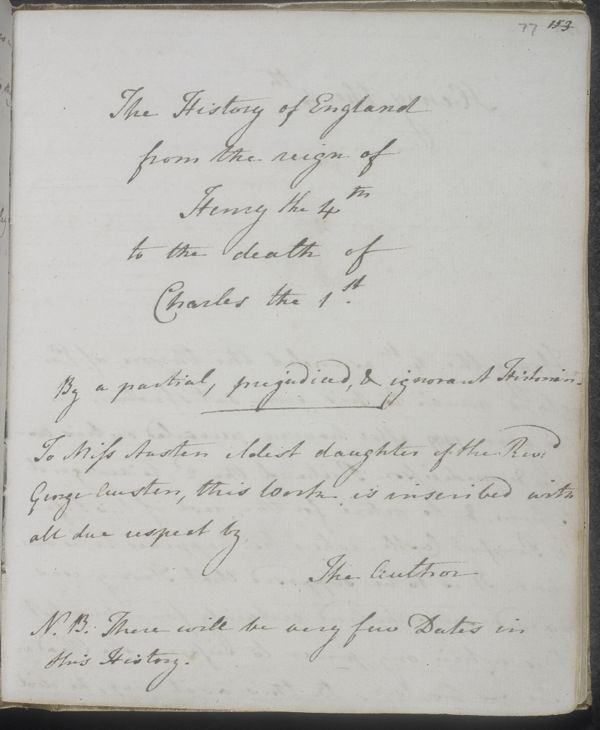 77 153
The History of England
from the reign of
Henry the 4th
to the death of
Charles the 1st.
By a partial, prejudiced, & ignorant Historian.
To Miss Austen eldest daughter of the Revd
George Austen, this Work is inscribed with
all due respect by
The Author
N.B. There will be very few Dates in
this History.